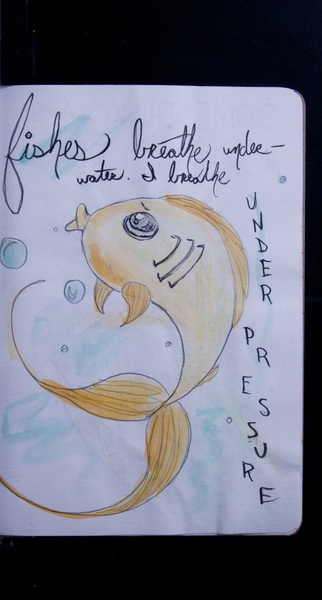 fishes breathe under-
water. I breathe
UNDER PRESSURE